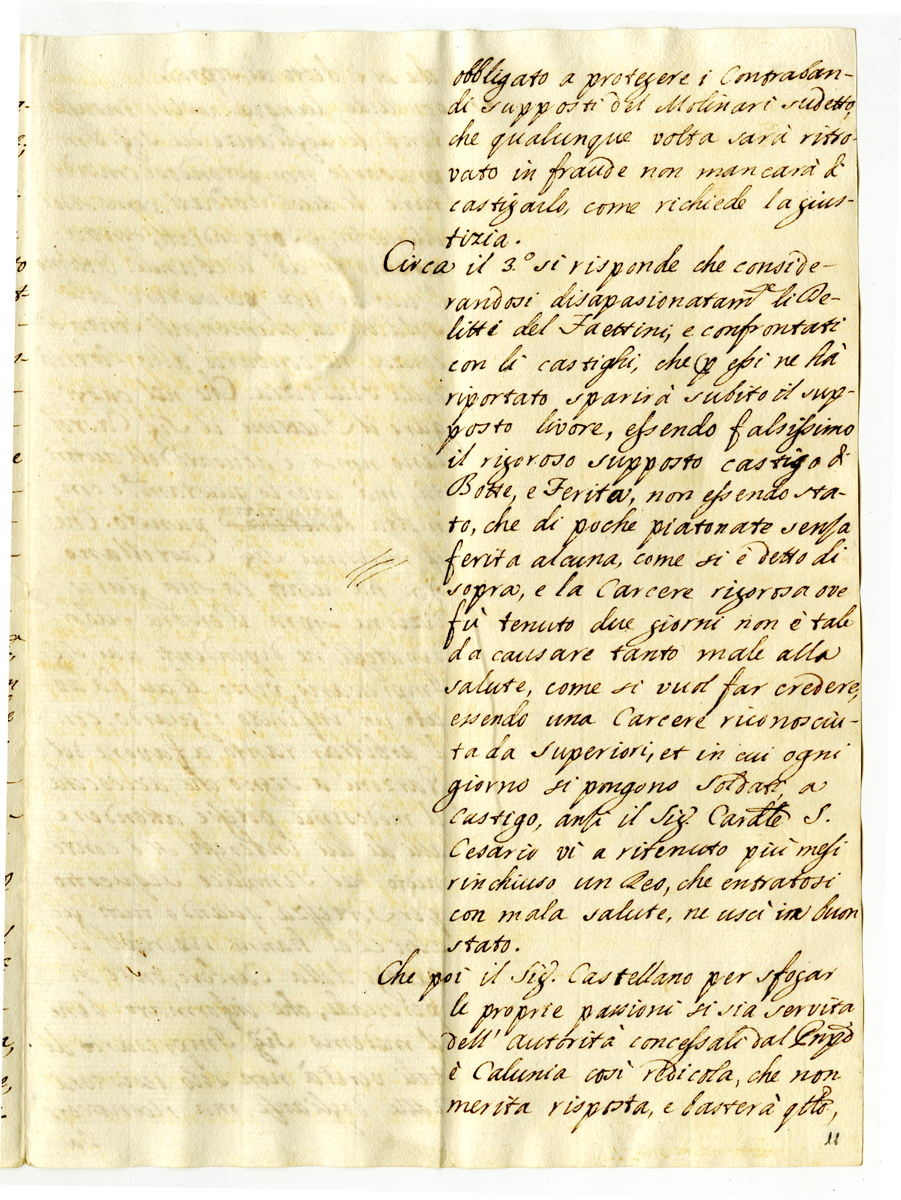 obbligato a protegere i Contraban-
di supposti del Molinari sudetto,
che qualunque volta sarà ritro-
vato in fraude non mancarà di
castigarlo, come richiede la gius-
tizia.
Circa il 3.º si risponde che conside-
randosi disapasionatam.te li De-
litti del Faettini, e confrontati
con li castighi, che p essi ne hà
riportato sparirà subito il sup-
posto livore, essendo falsissimo
il rigoroso supposto castigo di
Botte, e Ferita, non essendo sta-
to, che di poche piatonate senza
ferita alcuna, come si è detto di
sopra, e la Carcere rigorosa ove
fù tenuto due giorni non è tale
da causare tanto male alla
salute, come si vuol far credere,
essendo una Carcere riconosciu-
ta da Superiori, et in cui ogni
giorno si pongono Soldati a
castigo, anzi il Sig. Cardle S.
Cesario vi a ritenuto più mesi
rinchiuso un Reo, che entratosi
con mala salute, ne uscì in buon
stato.
Che poi il Sig. Castellano per sfogar
le proprie passioni si sia servita
dell' autorità concessali dal
è Calunia così redicola, che non
merita risposta, e basterà qtto,
11